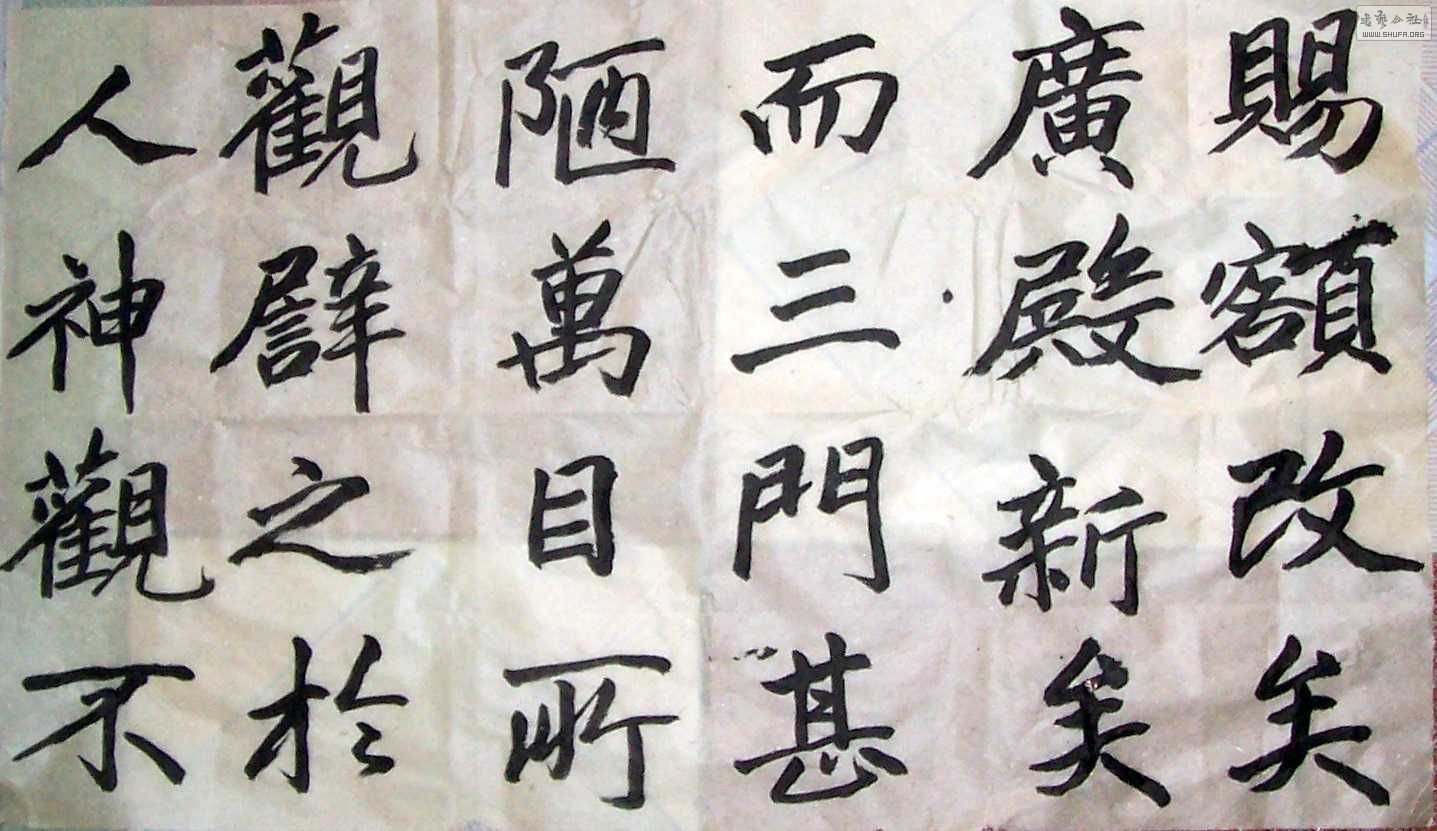 賜額改矣
廣殿新矣
而三門甚
陋萬目所
觀譬之於
人神觀不
WWW.SHUFA.ORG